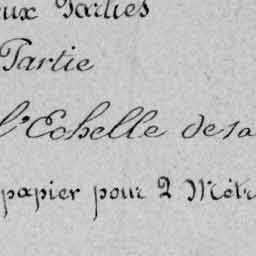 eux Parties
Partie
l'Echelle de 1a
papier pour 2 Mètr